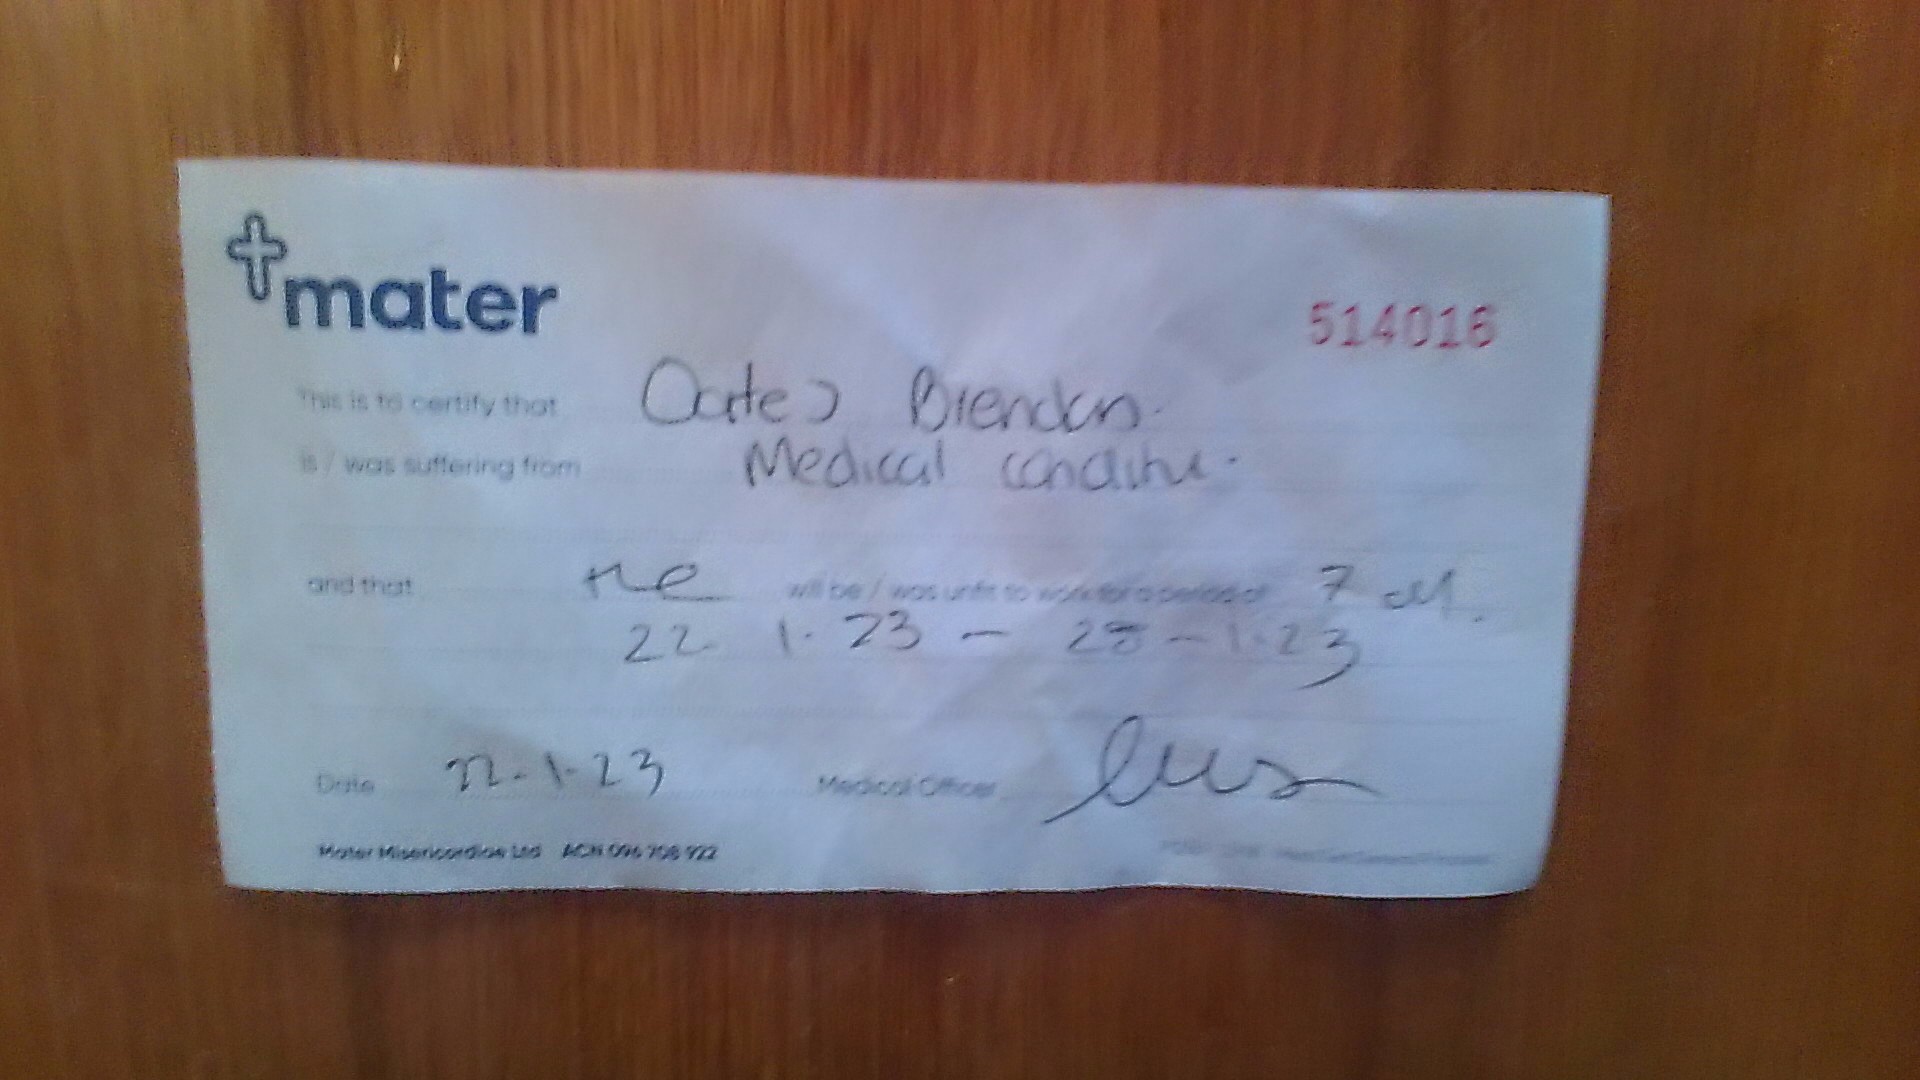 mater
514016
This is to certify that Oates Brendan.
is / was suffering from Medical condition.
and that he will be / was unfit to work for a period of 7
22 1.23 - 28-1.23
Date 22-1-23 Medical Officer
Mater Misericordiae Ltd ACN 096 708 922